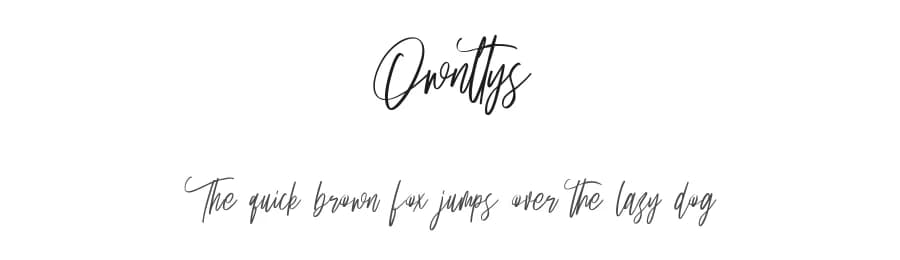 Ownttys
The quick brown fox jumps over the lazy dog